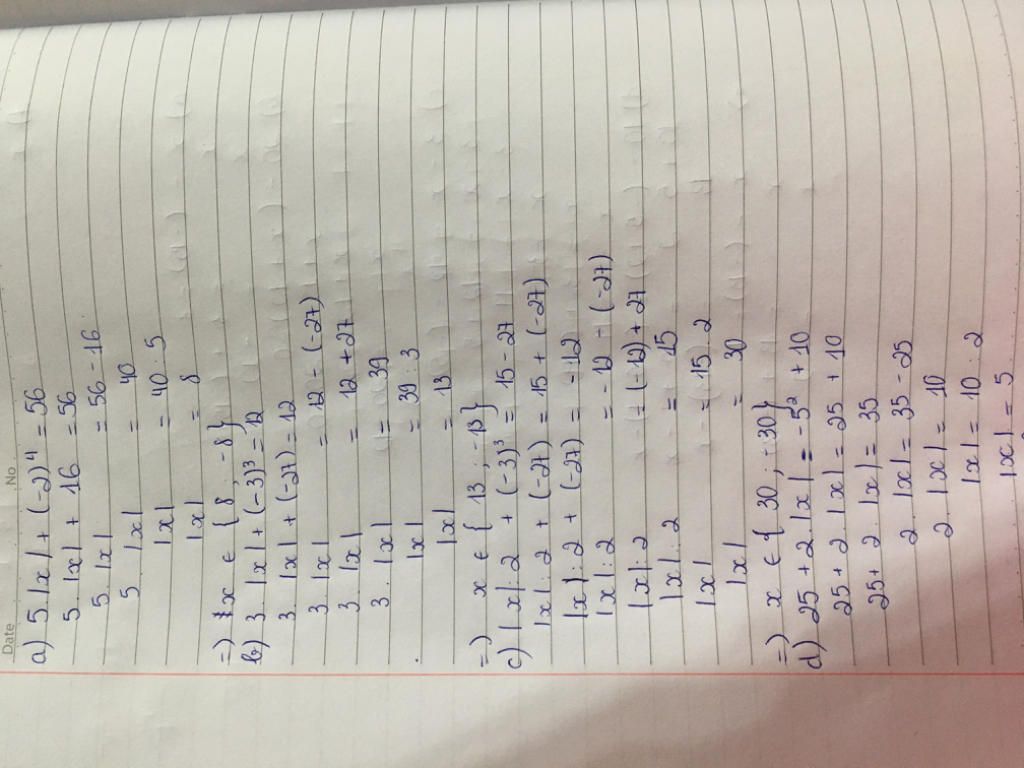 Date No
a) 5.|x| + (-2)⁴ = 56
5. |x| + 16 = 56
5. |x| = 56 - 16
5. |x| = 40
|x| = 40 : 5
|x| = 8
=) x ∈ { 8 ; -8 }
b) 3. |x| + (-3)³ = 12
3. |x| + (-27) = 12
3. |x| = 12 - (-27)
3. |x| = 12 + 27
3. |x| = 39
|x| = 39 : 3
|x| = 13
=) x ∈ { 13 ; -13 }
c) |x| : 2 + (-3)³ = 15 - 27
|x| : 2 + (-27) = 15 + (-27)
|x| : 2 + (-27) = -12
|x| : 2 = -12 - (-27)
|x| : 2 = (-12) + 27
|x| : 2 = 15
|x| = 15 . 2
|x| = 30
=) x ∈ { 30 ; -30 }
d) 25 + 2. |x| = -5² + 10
25 + 2. |x| = 25 + 10
25 + 2. |x| = 35
2. |x| = 35 - 25
2. |x| = 10
|x| = 10 : 2
|x| = 5